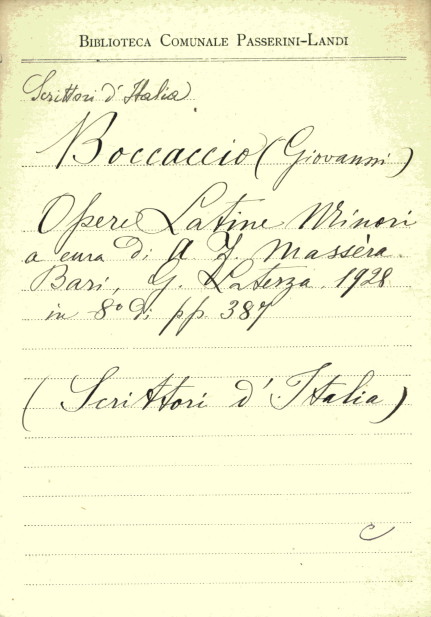 BIBLIOTECA COMUNALE PASSERINI-LANDI
Scrittori d'Italia
Boccaccio (Giovanni)
Opere Latine Minori
a cura di A. F. Massèra.
Bari, G. Laterza. 1928
in 8° di pp. 387
(Scrittori d'Italia)
C